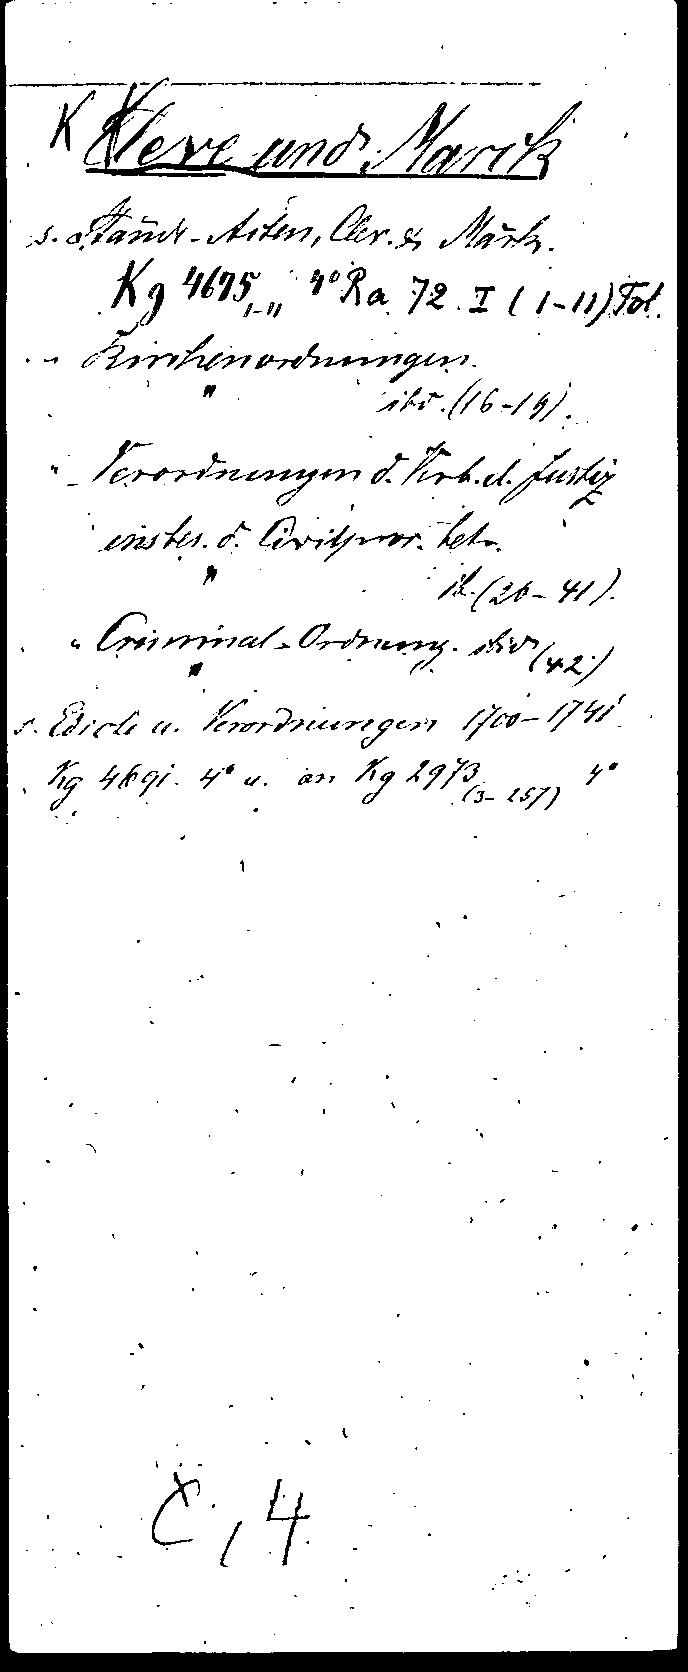 K Kleve und Marck
s. Stände-Acten, Clev. & Märk.
Kg 4675,, 4° Ra 72. I (1-11) Fol.
" Kirchenordnungen.
" ibd. (16-19).
" Verordnungen d. Verb. d. Justiz
insbes. d. Civilproc. betr.
" ib. (26-41).
" Criminal-Ordnung. ibid (42.)
"
s. Edicte u. Verordnungen 1700-1741
Kg 4691. 4° u. an Kg 2973 (3-257) 4°
C, 4